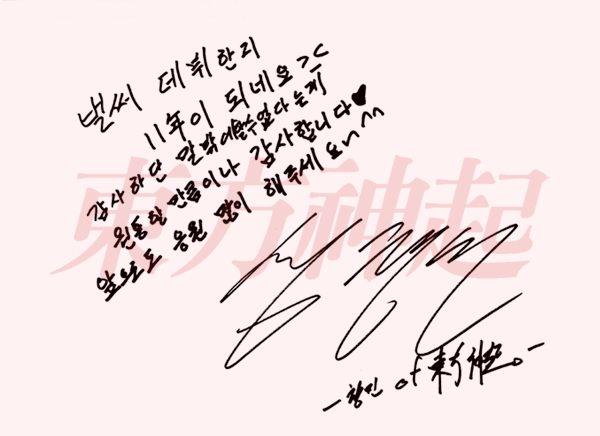 벌써 데뷔한지
11年이 되네요><
감사하단 말밖에할수없다는게
원통할만큼이나 감사합니다♥
앞으로도 응원 많이 해주세요^^
東方神起
-창민 of 東方神起-